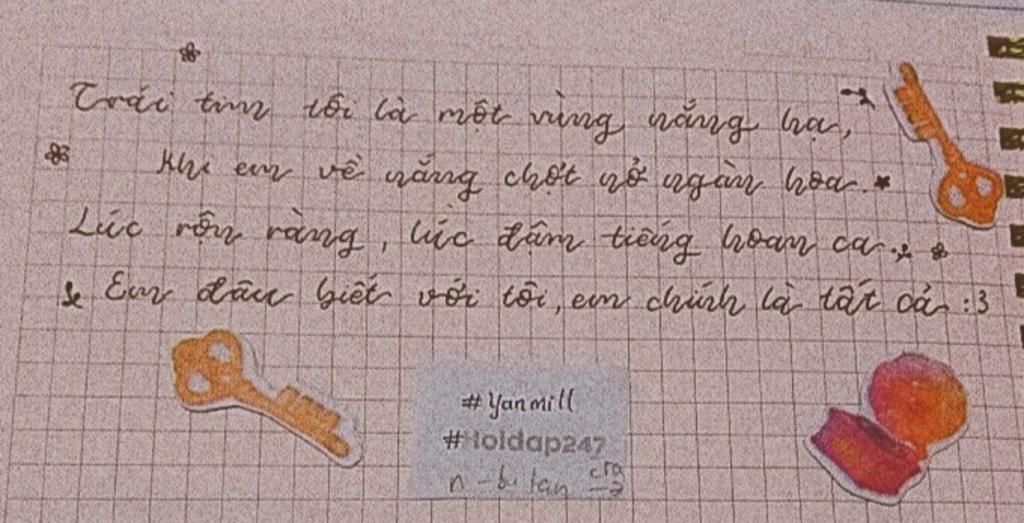 Trái tim tôi là một vùng nắng hạ,
Khi em về nắng chợt nở ngàn hoa.
Lúc rộn ràng, lúc đậm tiếng hoan ca.
Em đâu biết với tôi, em chính là tất cả :3
#Yanmill
#Hoidap247